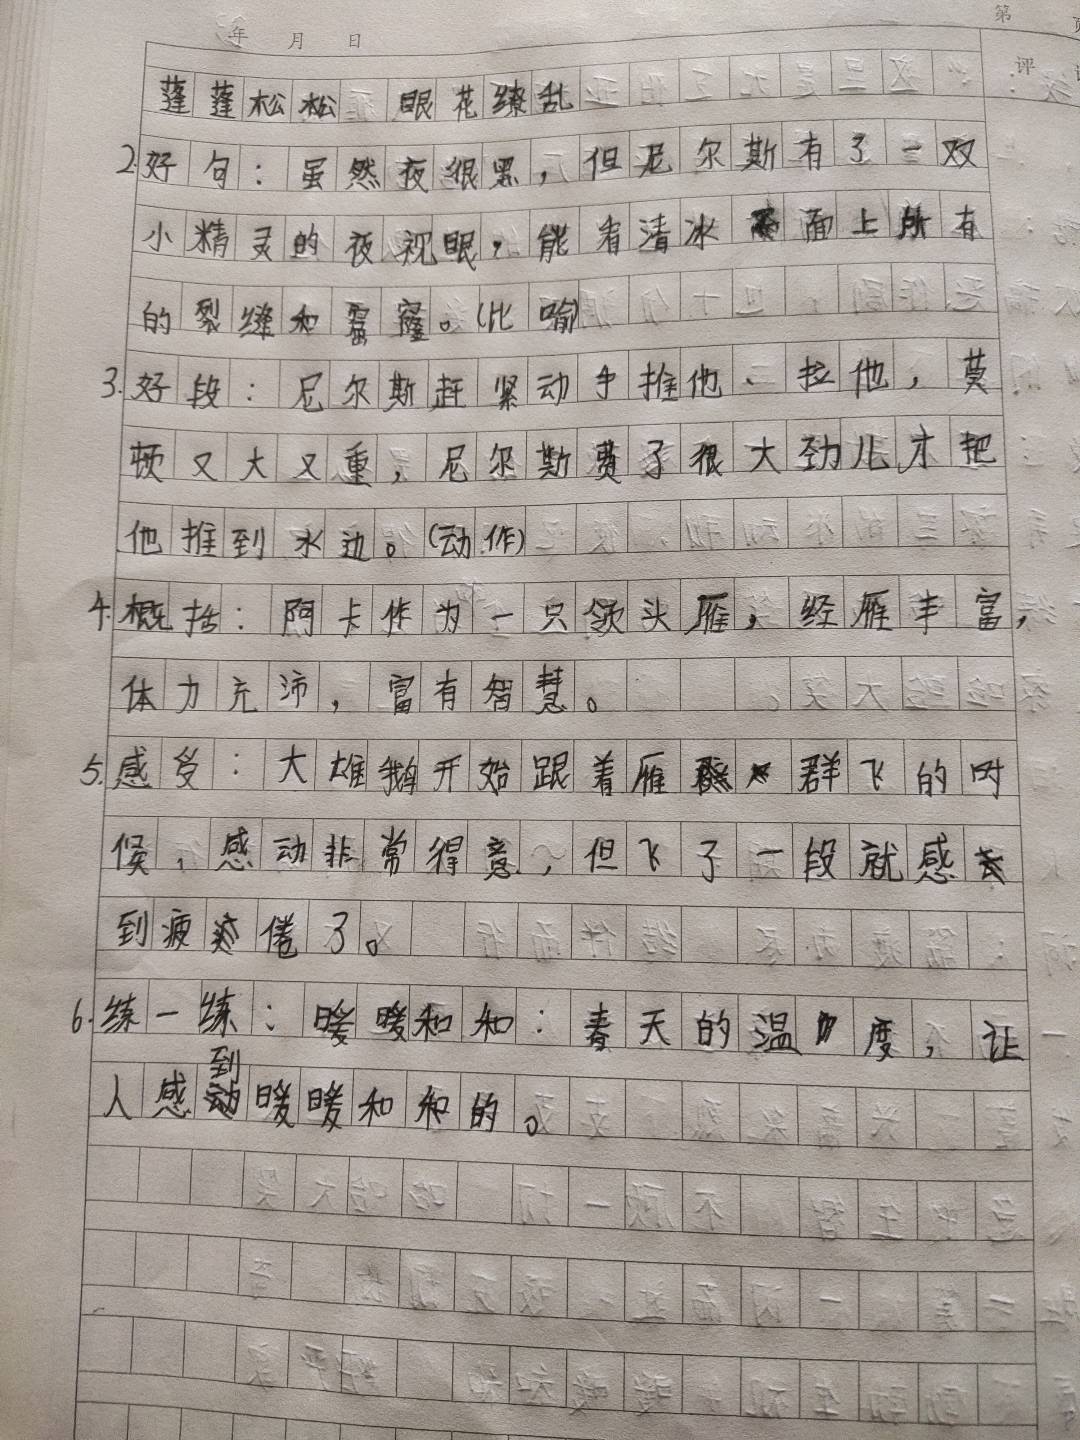 年 月 日 第 页
评
蓬蓬松松 眼花缭乱
2.好句：虽然夜很黑，但尼尔斯有了一双
小精灵的夜视眼，能看清冰面上所有
的裂缝和窟窿。(比喻)
3.好段：尼尔斯赶紧动手推他、拉他，莫
顿又大又重，尼尔斯费了很大劲儿才把
他推到水边。(动作)
4.概括：阿卡作为一只领头雁，经雁丰富，
体力充沛，富有智慧。
5.感受：大雄鹅开始跟着雁群飞的时
候，感动非常得意，但飞了一段就感
到疲倦了。
6.练一练：暖暖和和：春天的温度，让
人感到暖暖和和的。